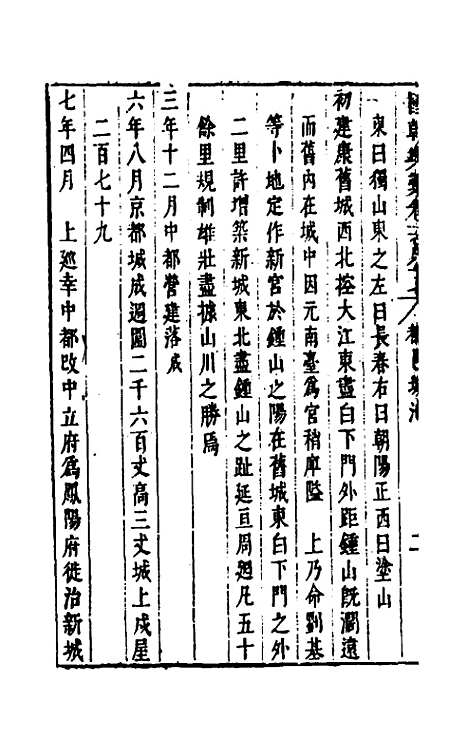 東曰獨山東之左曰長春右曰朝陽正西曰塗山
初建康舊城西北控大江東盡白下門外距鍾山既濶遠
而舊内在城中因元南臺爲宮稍庳隘　上乃命劉基
等卜地定作新宮於鍾山之陽在舊城東白下門之外
二里許增築新城東北盡鍾山之趾延亘周廻凡五十
餘里規制雄壯盡據山川之勝焉
三年十二月中都營建落成
六年八月京都城成週圍二千六百丈高三丈城上成屋
二百七十九
七年四月　上廵幸中都改中立府爲鳳陽府徙治新城
二